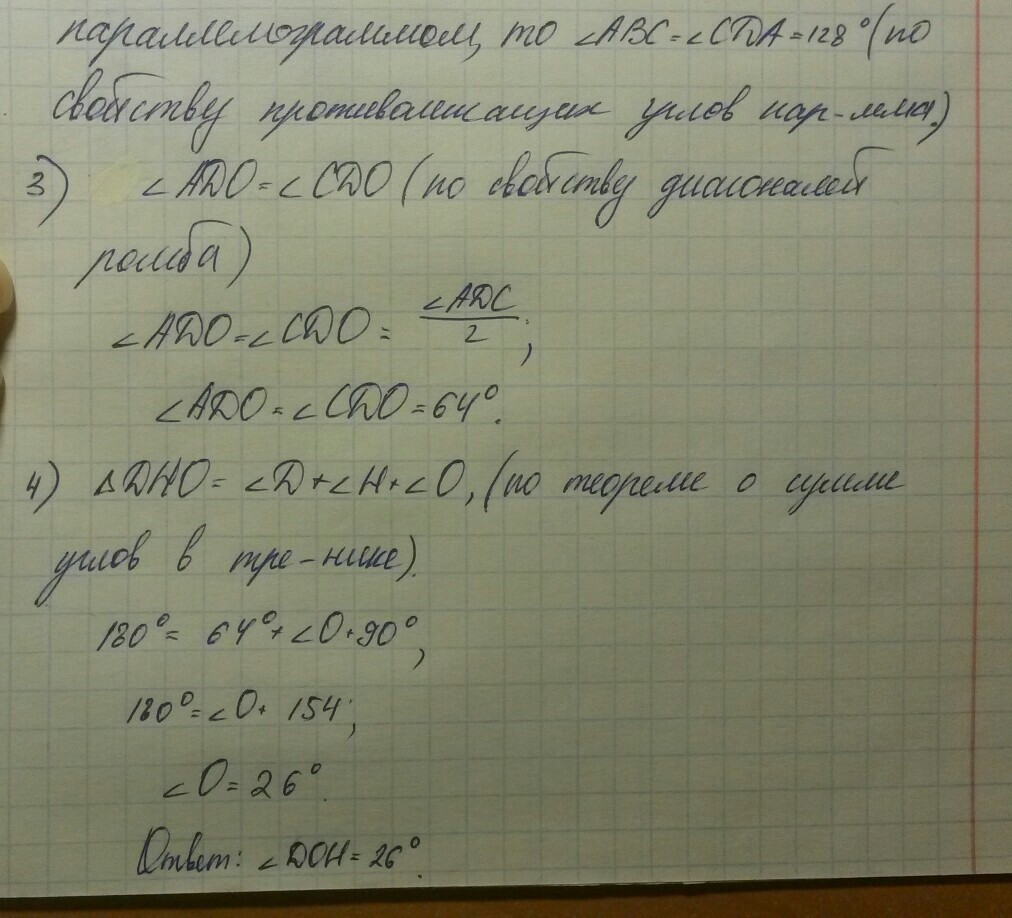 параллелограммом, то ∠ABC=∠CDA=128° (по
свойству противолежащих углов пар-мма.)
3) ∠ADO=∠CDO (по свойству диагоналей
ромба)
∠ADO=∠CDO= ∠ADC/2;
∠ADO=∠CDO=64°.
4) △DHO= ∠D+∠H+∠O, (по теореме о сумме
углов в тре-нике).
180°= 64°+∠O+90°,
180°=∠O+ 154;
∠O=26°.
Ответ: ∠DOH=26°.